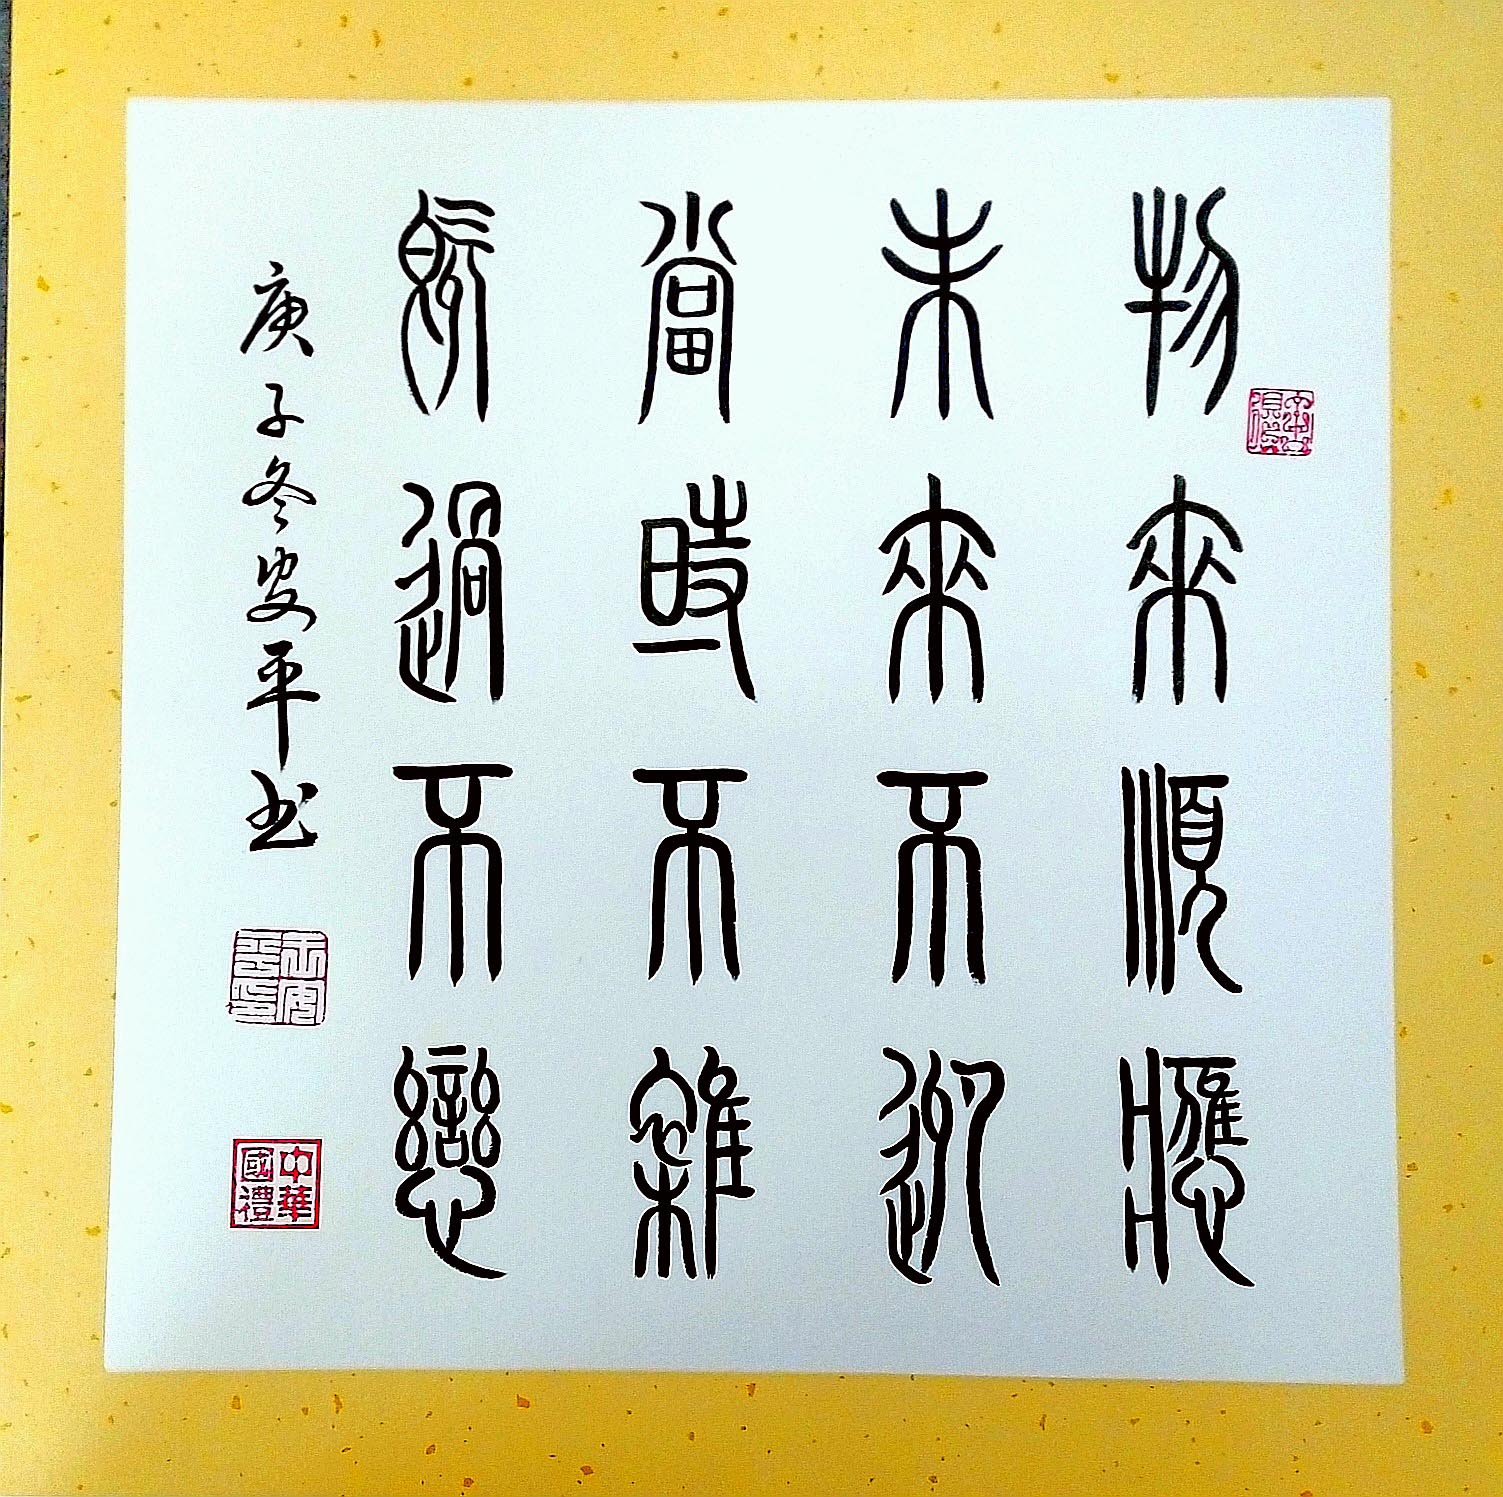 物來順應
未來不迎
當時不雜
既過不戀
庚子冬安平书
中華國禮